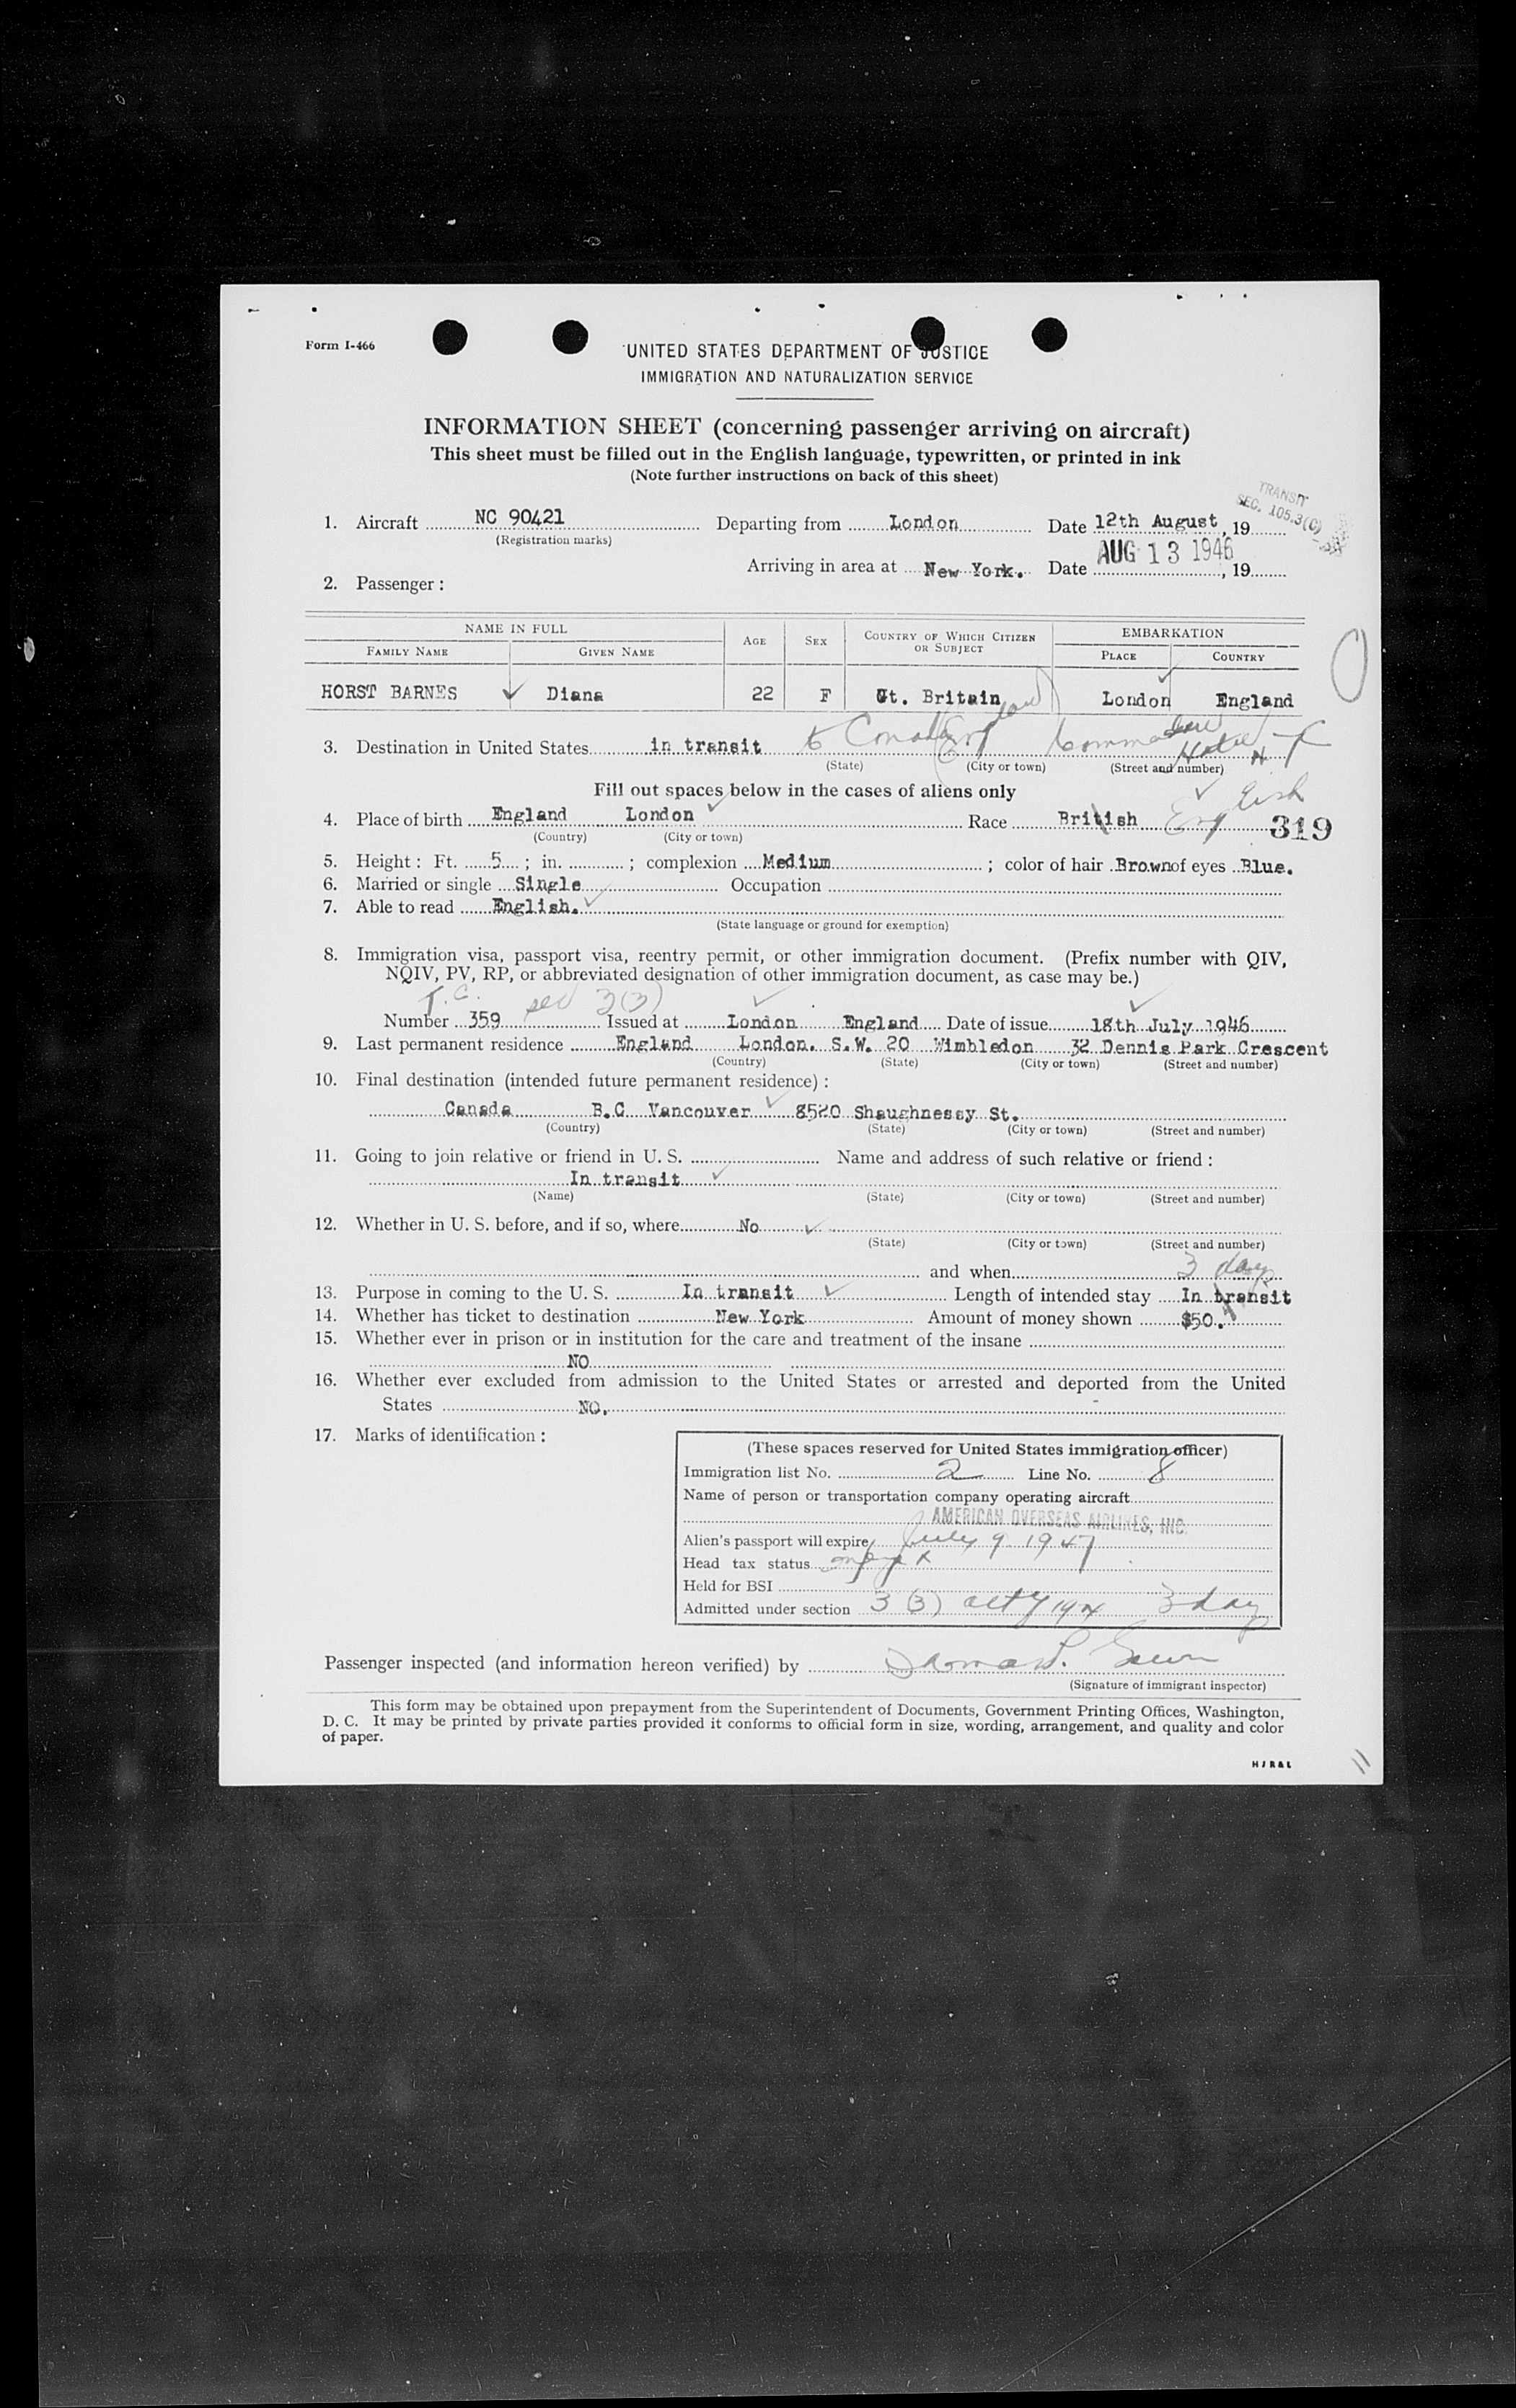 Form I-466
UNITED STATES DEPARTMENT OF JUSTICE
IMMIGRATION AND NATURALIZATION SERVICE
INFORMATION SHEET (concerning passenger arriving on aircraft)
This sheet must be filled out in the English language, typewritten, or printed in ink
(Note further instructions on back of this sheet)
TRANSIT
SEC. 105.3(C)
1. Aircraft NC 90421 Departing from London Date 12th August, 19
(Registration marks)
Arriving in area at New York. Date AUG 13 1946, 19
2. Passenger:
NAME IN FULL AGE SEX COUNTRY OF WHICH CITIZEN OR SUBJECT EMBARKATION
FAMILY NAME GIVEN NAME PLACE COUNTRY
HORST BARNES Diana 22 F Gt. Britain London England
3. Destination in United States in transit to Canada
(State) (City or town) (Street and number)
Fill out spaces below in the cases of aliens only
4. Place of birth England London Race British Eng lish 319
(Country) (City or town)
5. Height: Ft. 5; in. ; complexion Medium; color of hair Brown of eyes Blue.
6. Married or single Single Occupation
7. Able to read English.
(State language or ground for exemption)
8. Immigration visa, passport visa, reentry permit, or other immigration document. (Prefix number with QIV,
NQIV, PV, RP, or abbreviated designation of other immigration document, as case may be.)
T.C. sec 3(3)
Number 359 Issued at London England Date of issue 18th July 1946
9. Last permanent residence England London. S.W. 20 Wimbledon 32 Dennis Park Crescent
(Country) (State) (City or town) (Street and number)
10. Final destination (intended future permanent residence):
Canada B.C. Vancouver 8520 Shaughnessy St.
(Country) (State) (City or town) (Street and number)
11. Going to join relative or friend in U. S. Name and address of such relative or friend:
In transit
(Name) (State) (City or town) (Street and number)
12. Whether in U. S. before, and if so, where No
(State) (City or town) (Street and number)
and when 3 days
13. Purpose in coming to the U. S. In transit Length of intended stay In transit
14. Whether has ticket to destination New York Amount of money shown $50.
15. Whether ever in prison or in institution for the care and treatment of the insane
NO
16. Whether ever excluded from admission to the United States or arrested and deported from the United
States NO.
17. Marks of identification:
(These spaces reserved for United States immigration officer)
Immigration list No. 2 Line No. 8
Name of person or transportation company operating aircraft
AMERICAN OVERSEAS AIRLINES, INC.
Alien's passport will expire July 9 1947
Head tax status
Held for BSI
Admitted under section 3 (3) act of 1924 3 day
Passenger inspected (and information hereon verified) by
(Signature of immigrant inspector)
This form may be obtained upon prepayment from the Superintendent of Documents, Government Printing Offices, Washington,
D. C. It may be printed by private parties provided it conforms to official form in size, wording, arrangement, and quality and color
of paper.
HJR&L